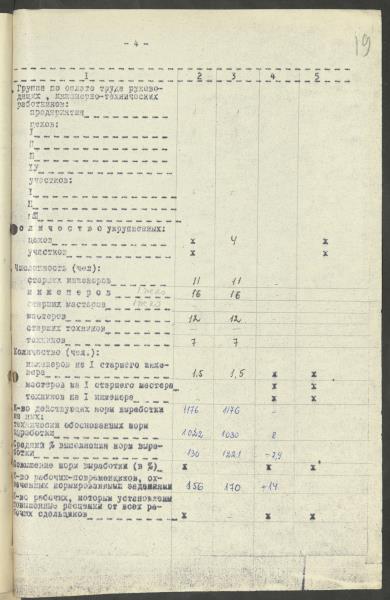 - 4 -
19
I 2 3 4 5
Группа по оплате труда руково-
дящих, инженерно-технических
работников:
предприятия
цехов:
I
П
Ш
IУ
участков:
I
П
Ш
Количество укрупненных:
цехов х 4 х
участков х х
Численность (чел):
старших инженеров 11 11
инженеров 16 16
старших мастеров
мастеров 12 12
старших техников —
техников 7 7
Количество (чел.):
инженеров на I старшего инже-
нера 1,5 1,5 х х
мастеров на I старшего мастера х х
техников на I инженера х х
К-во действующих норм выработки 1176 1176 -
из них:
технически обоснованных норм
выработки 1022 1030 8
Средний % выполнения норм выра-
ботки 130 122,1 -7,9
Повышение норм выработки (в %) х х х
К-во рабочих-повременщиков, ох-
ваченных нормированными заданиями 156 170 +14
К-во рабочих, которым установлены
повышенные расценки от всех ра-
бочих сдельщиков х х х